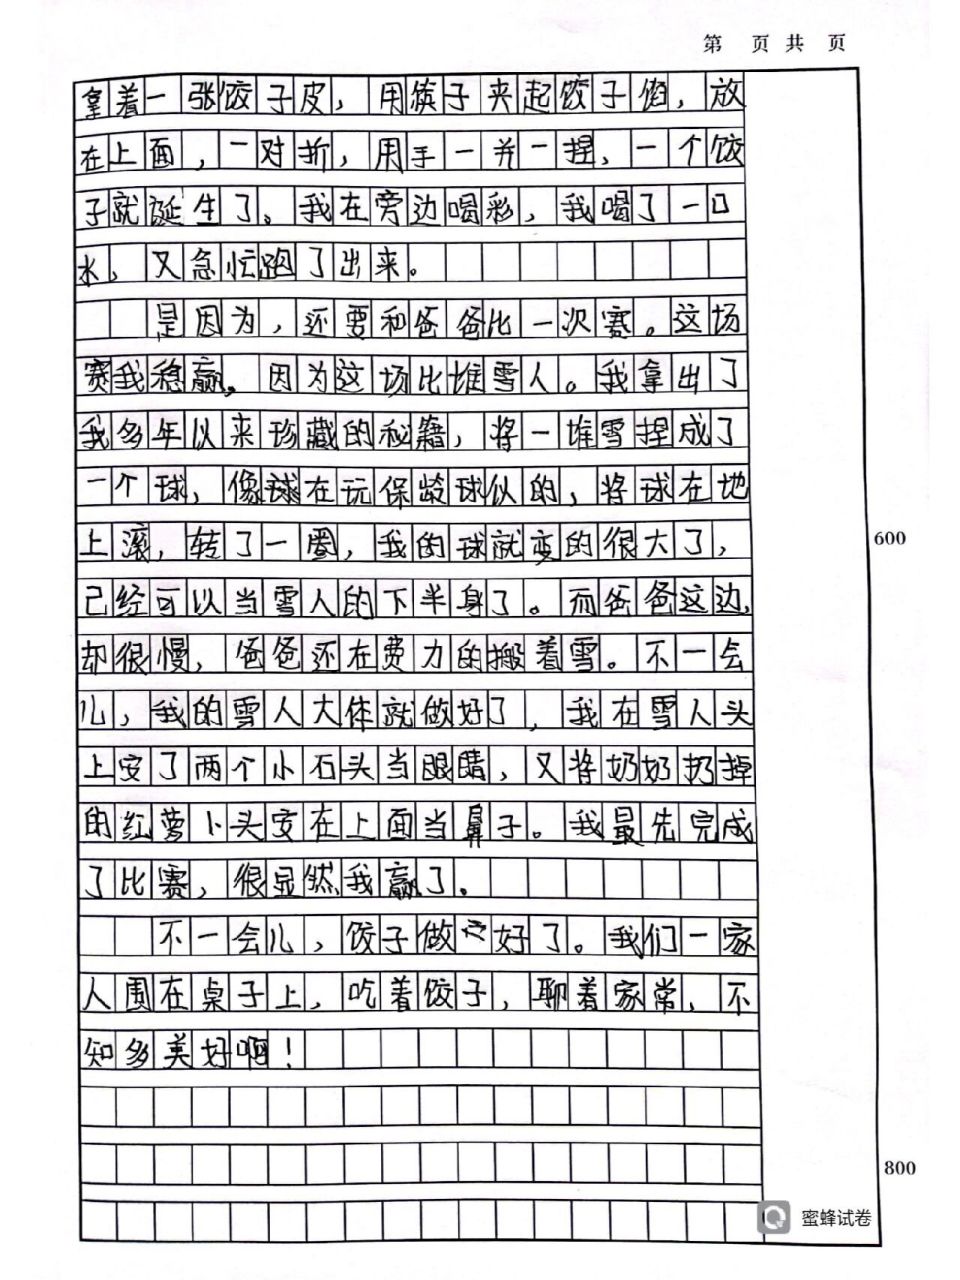 第 页 共 页
拿着一张饺子皮，用筷子夹起饺子馅，放
在上面，一对折，用手一并一捏，一个饺
子就诞生了。我在旁边喝彩，我喝了一口
水，又急忙跑了出来。
是因为，还要和爸爸比一次赛。这场
赛我稳赢，因为这场比堆雪人。我拿出了
我多年以来珍藏的秘籍，将一堆雪捏成了
一个球，像球在玩保龄球似的，将球在地
上滚，转了一圈，我的球就变的很大了，
600
已经可以当雪人的下半身了。而爸爸这边，
却很慢，爸爸还在费力的搬着雪。不一会
儿，我的雪人大体就做好了，我在雪人头
上安了两个小石头当眼睛，又将奶奶扔掉
的红萝卜头安在上面当鼻子。我最先完成
了比赛，很显然我赢了。
不一会儿，饺子做好了。我们一家
人围在桌子上，吃着饺子，聊着家常，不
知多美好啊！
800
蜜蜂试卷